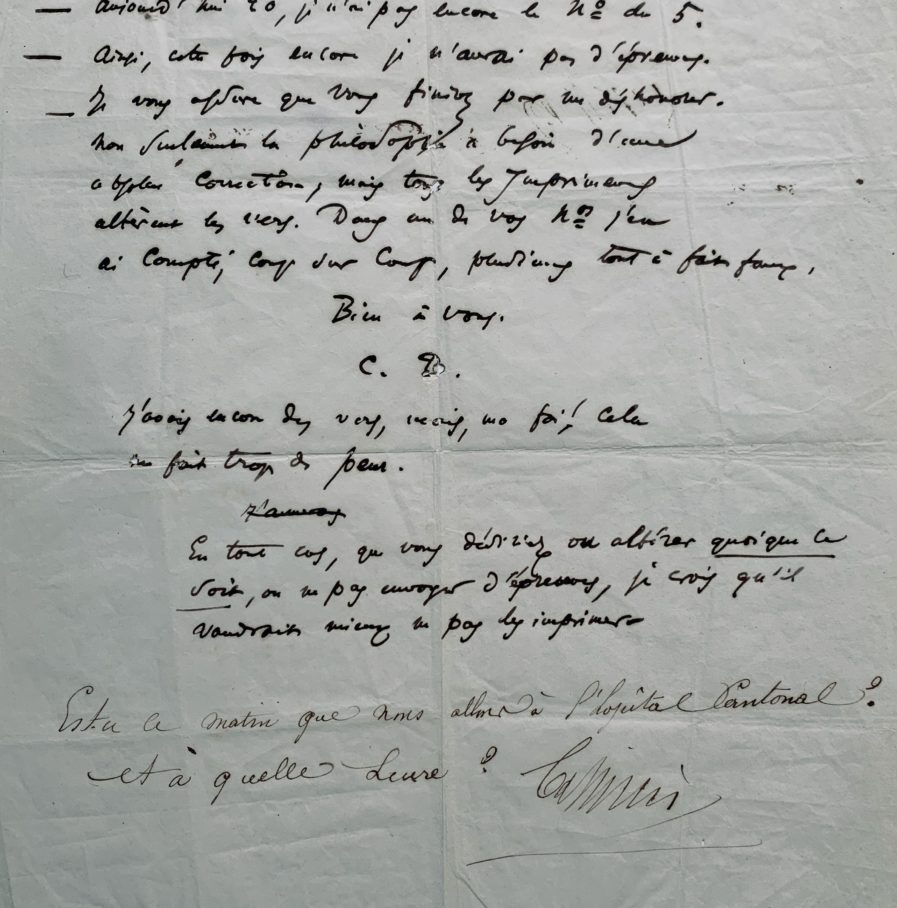 — Aujourd'hui 20, je n'ai pas encore le Nº du 5.
— Ainsi, cette fois encore je n'aurai pas d'épreuves.
— Je vous assure que vous finirez par me déshonorer.
non seulement la philosophie a besoin d'une
absolue correction, mais tous les Imprimeurs
altèrent les vers. Dans un de vos Nos j'en
ai compté, coup sur coup, plusieurs tout à fait faux.
Bien à vous.
C. B.
J'avais encore des vers, mais, ma foi! cela
me fait trop de peur.
En tout cas, que vous désiriez ou altérer quoique ce
soit, ou ne pas envoyer d'épreuves, je crois qu'il
vaudrait mieux ne pas les imprimer
Est-ce ce matin que nous allons à l'hôpital Cantonal?
et à quelle heure?